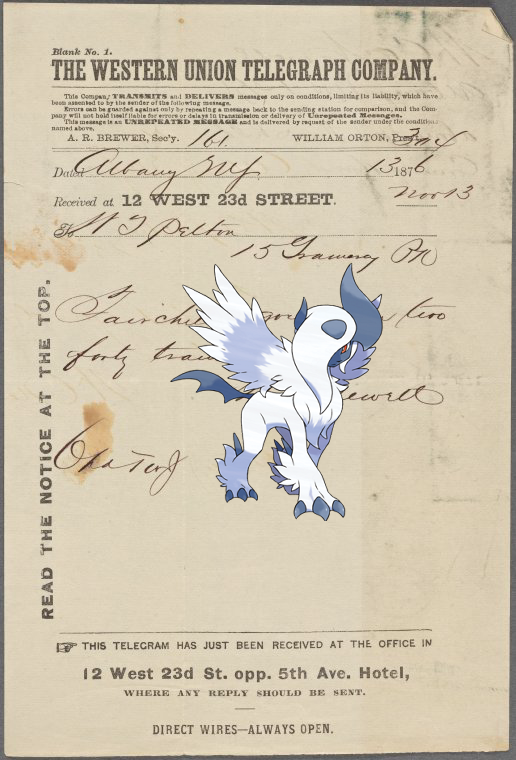 Blank No. 1.
THE WESTERN UNION TELEGRAPH COMPANY.
This Company TRANSMITS and DELIVERS messages only on conditions, limiting its liability, which have
been assented to by the sender of the following message.
Errors can be guarded against only by repeating a message back to the sending station for comparison, and the Com-
pany will not hold itself liable for errors or delays in transmission or delivery of Unrepeated Messages.
This message is an UNREPEATED MESSAGE and is delivered by request of the sender under the conditions
named above.
A. R. BREWER, Sec'y. 161 WILLIAM ORTON, Pres't
Dated Albany NY 13 1876
Received at 12 WEST 23d STREET. Nov 13
To W T Pelton
15 Gramercy Pk
two
forty
READ THE NOTICE AT THE TOP.
THIS TELEGRAM HAS JUST BEEN RECEIVED AT THE OFFICE IN
12 West 23d St. opp. 5th Ave. Hotel,
WHERE ANY REPLY SHOULD BE SENT.
DIRECT WIRES—ALWAYS OPEN.